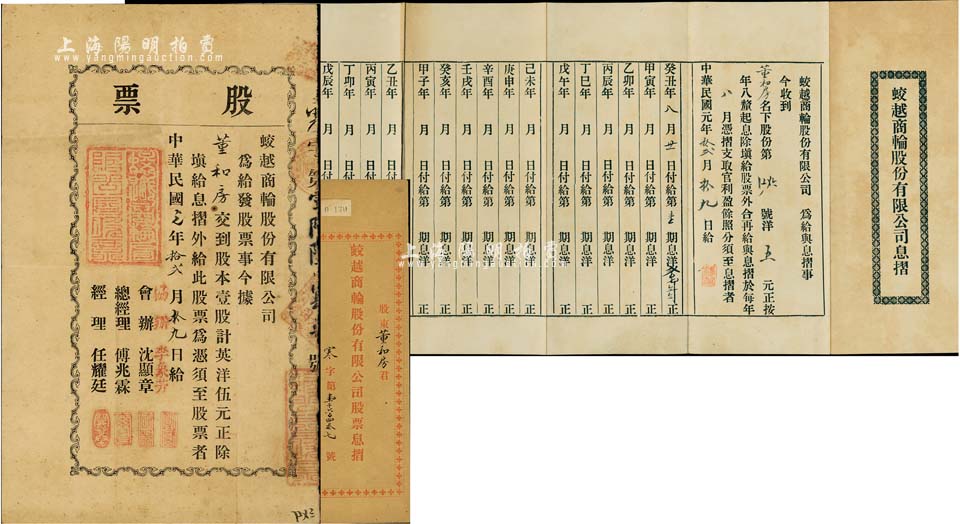 上海陽明拍賣
www.yangmingauction.com
股票
蛟越商輪股份有限公司
為給發股票事今據
董和房交到股本壹股計英洋伍元正除
塡給息摺外給此股票為憑須至股票者
中華民國元年拾弍月拾九日給
協辦 李
會辦 沈顯章
總經理 傅兆霖
經理 任耀廷
號
0 170
股東董和房君
蛟越商輪股份有限公司股票息摺
寒字第 號
蛟越商輪股份有限公司息摺
蛟越商輪股份有限公司 為給與息摺事
今收到
董和房名下股份第 號洋 五 元正按
年八釐起息除塡給股票外合再給與息摺於每年
八 月憑摺支取官利盈餘照分須至息摺者
中華民國元年拾弍月拾九日給
癸丑年八月廿日付給第壹期息洋 正
甲寅年 月 日付給第 期息洋 正
乙卯年 月 日付給第 期息洋 正
丙辰年 月 日付給第 期息洋 正
丁巳年 月 日付給第 期息洋 正
戊午年 月 日付給第 期息洋 正
己未年 月 日付給第 期息洋 正
庚申年 月 日付給第 期息洋 正
辛酉年 月 日付給第 期息洋 正
壬戌年 月 日付給第 期息洋 正
癸亥年 月 日付給第 期息洋 正
甲子年 月 日付給第 期息洋 正
乙丑年 月 日
丙寅年 月 日
丁卯年 月 日
戊辰年 月 日
上海陽明拍賣
www.yangmingauction.com